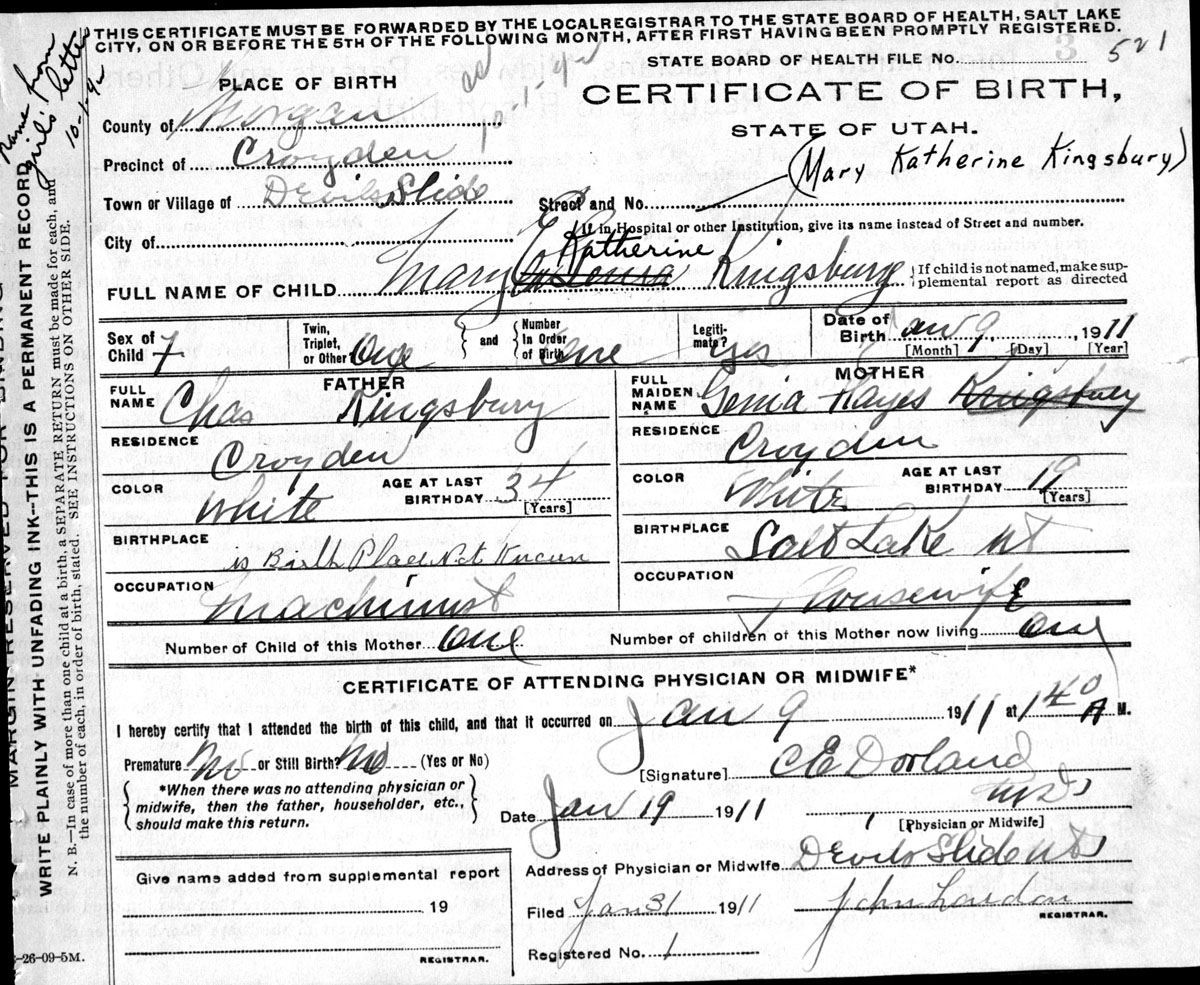 THIS CERTIFICATE MUST BE FORWARDED BY THE LOCAL REGISTRAR TO THE STATE BOARD OF HEALTH, SALT LAKE
CITY, ON OR BEFORE THE 5TH OF THE FOLLOWING MONTH, AFTER FIRST HAVING BEEN PROMPTLY REGISTERED.
STATE BOARD OF HEALTH FILE NO. 521
PLACE OF BIRTH
CERTIFICATE OF BIRTH,
STATE OF UTAH.
County of Morgan
Precinct of Croyden
(Mary Katherine Kingsbury)
Town or Village of Devils Slide
Street and No.
If in Hospital or other Institution, give its name instead of Street and number.
City of
Katherine
FULL NAME OF CHILD Mary Kingsbury
If child is not named, make sup-
plemental report as directed
Sex of Child F
Twin, Triplet, or Other One
and
Number In Order of Birth One
Legiti-mate? Yes
Date of Birth Jan 9, 1911
[Month] [Day] [Year]
FATHER
FULL NAME Chas Kingsbury
RESIDENCE Croyden
COLOR White
AGE AT LAST BIRTHDAY 34
[Years]
BIRTHPLACE is Birth Place Not Known
OCCUPATION Machinist
MOTHER
FULL MAIDEN NAME Genia Hayes Kingsbury
RESIDENCE Croyden
COLOR White
AGE AT LAST BIRTHDAY 19
[Years]
BIRTHPLACE Salt Lake Ut
OCCUPATION Housewife
Number of Child of this Mother One
Number of children of this Mother now living One
CERTIFICATE OF ATTENDING PHYSICIAN OR MIDWIFE*
I hereby certify that I attended the birth of this child, and that it occurred on Jan 9 1911 at 1 40 A M.
Premature No or Still Birth? No (Yes or No)
*When there was no attending physician or
midwife, then the father, householder, etc.,
should make this return.
[Signature] C E Dorland
Date Jan 19 1911
MD
[Physician or Midwife]
Give name added from supplemental report
19
REGISTRAR.
Address of Physician or Midwife Devils Slide Ut
Filed Jan 31 1911
John London
REGISTRAR.
Registered No. 1
-26-09-5M.
MARGIN RESERVED FOR BINDING
WRITE PLAINLY WITH UNFADING INK--THIS IS A PERMANENT RECORD
N. B.—In case of more than one child at a birth, a SEPARATE RETURN must be made for each, and
the number of each, in order of birth, stated. SEE INSTRUCTIONS ON OTHER SIDE.
Name from
girl's letter